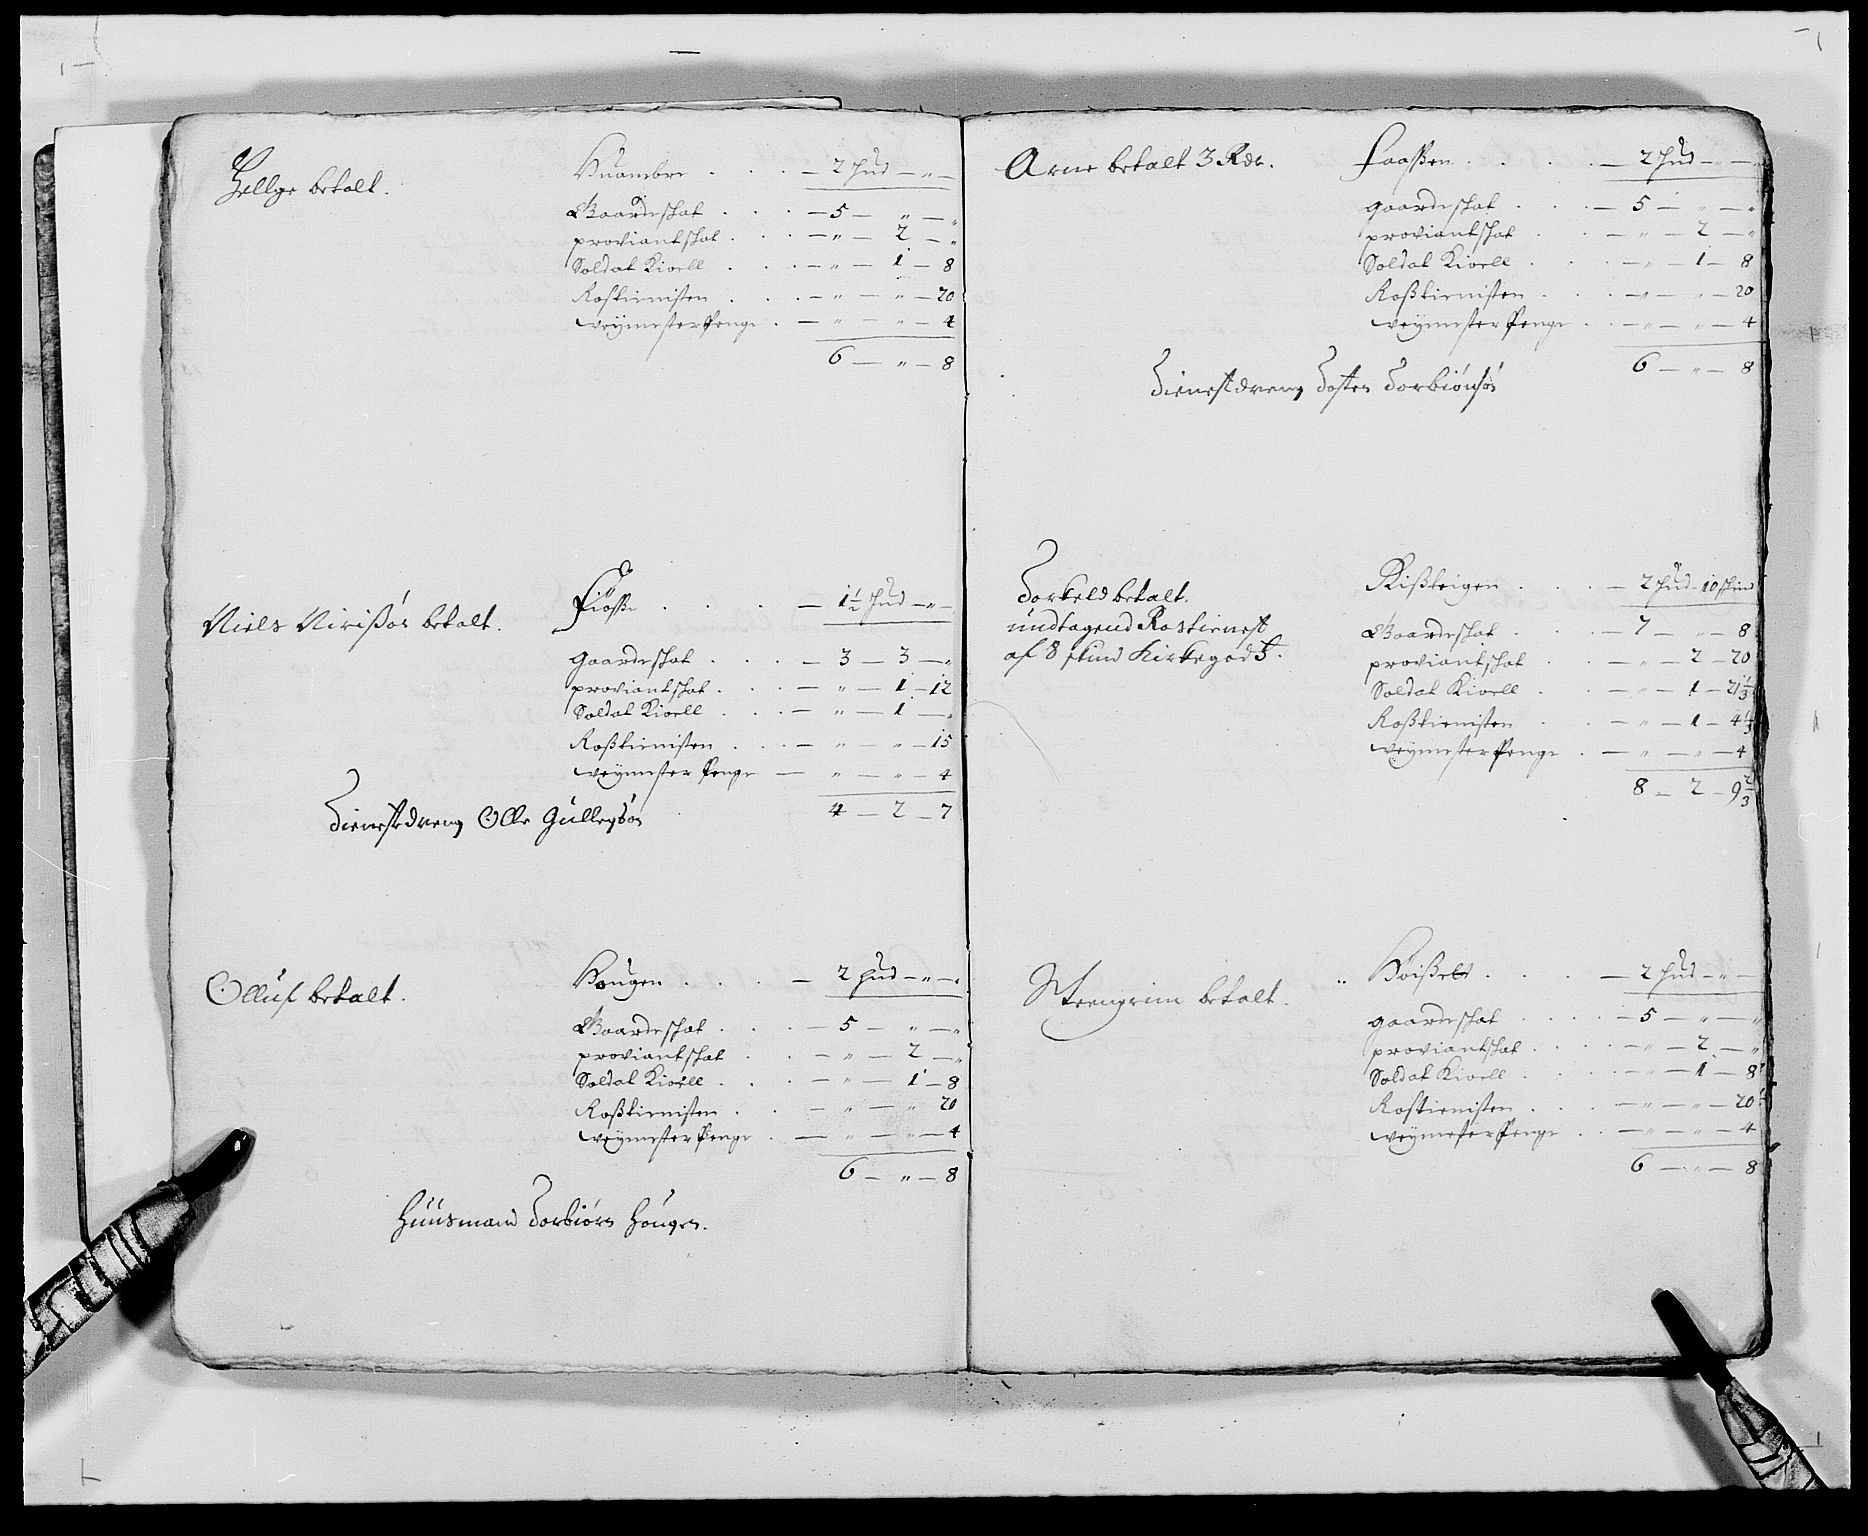 Hellge betalt.
Huambre . . . — 2 Hud — „ —
Gaardeschat . . . — 5 — „ — „
proviantschat . . . — „ — 2 — „
Soldat Kioell . . . — „ — 1 — 8
Rostienisten . . . — „ — „ — 20
weymester Penge . — „ — „ — 4
6 — „ — 8
Niels Nirißøn betalt.
Fioße . . . — 1½ Hud — „ —
gaardeschat . . . — 3 — 3 — „
proviantschat . . . — „ — 1 — 12
Soldat Kioell . . . — „ — 1 — „
Roßtienisten . . . — „ — „ — 15
weymester Penge — „ — „ — 4
4 — 2 — 7
Tienistedreng Olle Gullegsøn
Olluf betalt.
Hougen . . . — 2 Hud — „ — „
Gaardeschat . . . — 5 — „ — „
proviantschat . . . — „ — 2 — „
Soldat Kioell . . . — „ — 1 — 8
Roßtienisten . . — „ — „ 20
weymester Penge . — „ — „ — 4
6 — „ — 8
Huusmand Torbiørn Hougen.
Arne betalt 3 Rdr.
Faaßen . . . . — 2 Hud — „ —
gaardeschat . . . — 5 — „ — „
proviantschat . . — „ — 2 — „
Soldat Kioell . . . — „ — 1 — 8
Roßtienisten . . . — „ — „ — 20
weymester Penge . . — „ — „ — 4
6 — „ — 8
Tienestdreng Tosten Torbiønsøn
Torkeld betalt.
undtagend Rostienest
af 8 skind Kirkegods.
Rißteigen . . . — 2 Hud — 10 skind
Gaardeschat . . . — 7 — „ — 8
proviantschat . . — „ — 2 — 20
Soldat Kioell . . — „ — 1 — 21⅓
Roßtienisten . . — „ — 1 — 4⅓
weymester Penge . — „ — „ — 4
8 — 2 — 9⅔
Steengrim betalt.
Høißett . . . . — 2 Hud — „ —
gaardeschat . . . . — 5 — „ — „
proviantschat . . . . — „ — 2 — „
Soldat Kioell . . . . — „ — 1 — 8
Rostienisten . . . — „ — „ — 20
weymester Penge . . — „ — „ — 4
6 — „ — 8